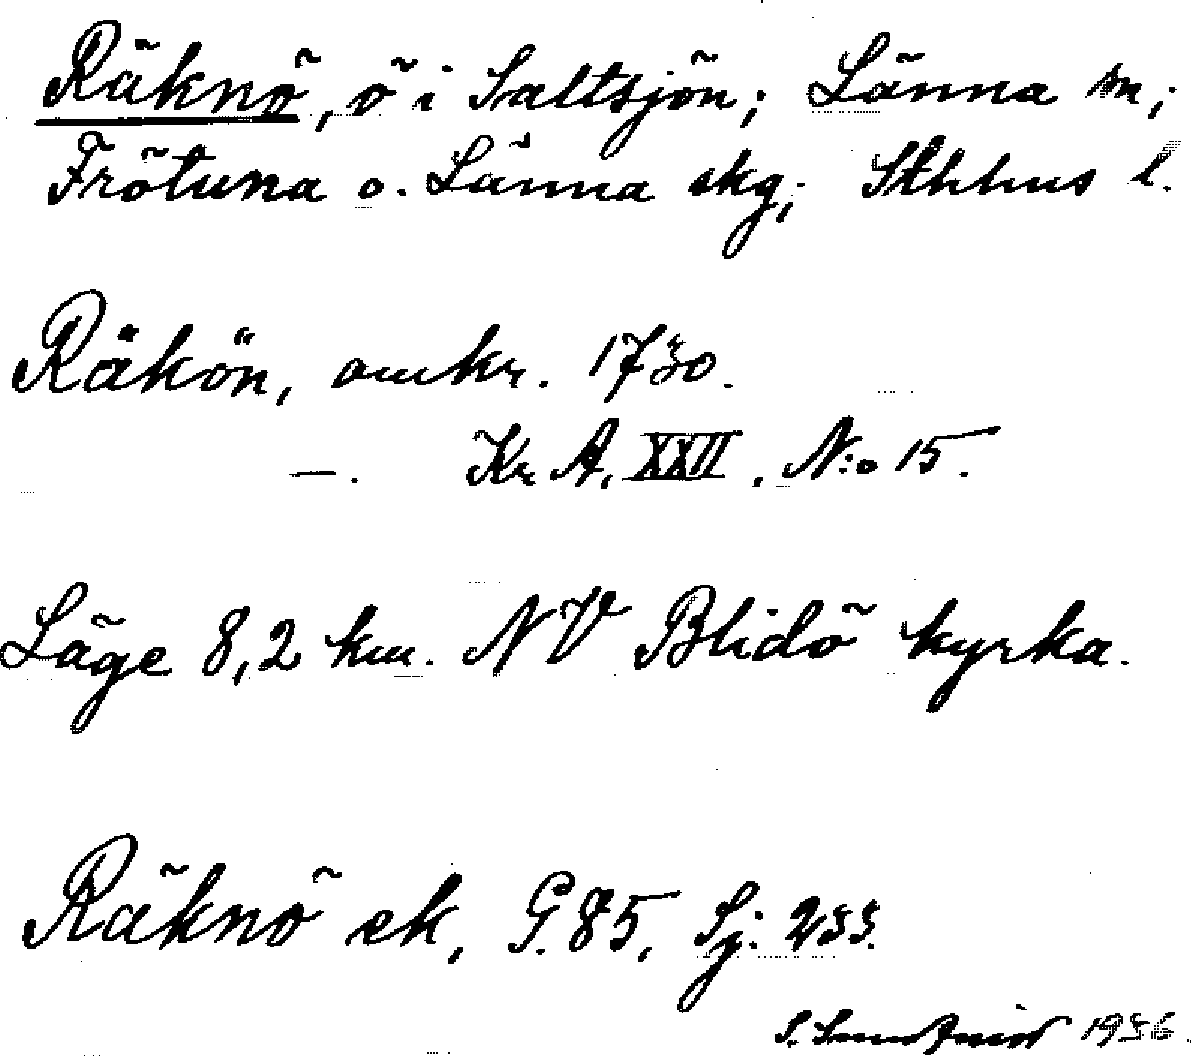 Räknö, ö i Saltsjön; Länna sn;
Frötuna o. Länna skg; Sthlms l.
Räkön, omkr. 1730.
—. Kr. A. XXII. N:o 15.
Läge 8,2 km. NV Blidö kyrka.
Räknö ek, G. 85, Sj: 233.
S. 1936.